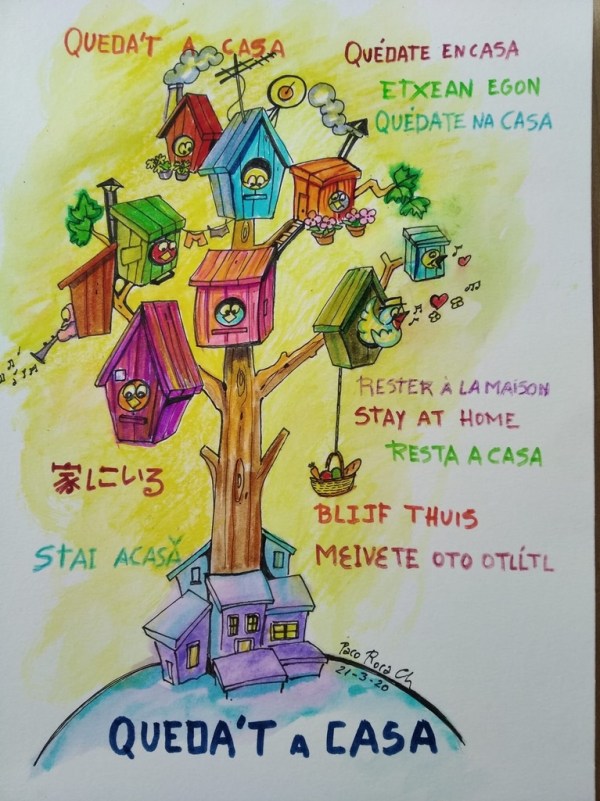 QUEDA'T A CASA
QUÉDATE EN CASA
ETXEAN EGON
QUÉDATE NA CASA
RESTER À LA MAISON
STAY AT HOME
RESTA A CASA
家にいる
BLIJF THUIS
STAI ACASĂ
MEIVETE OTO OTLÍTL
Paco Roca Ch
21-3-20
QUEDA'T A CASA